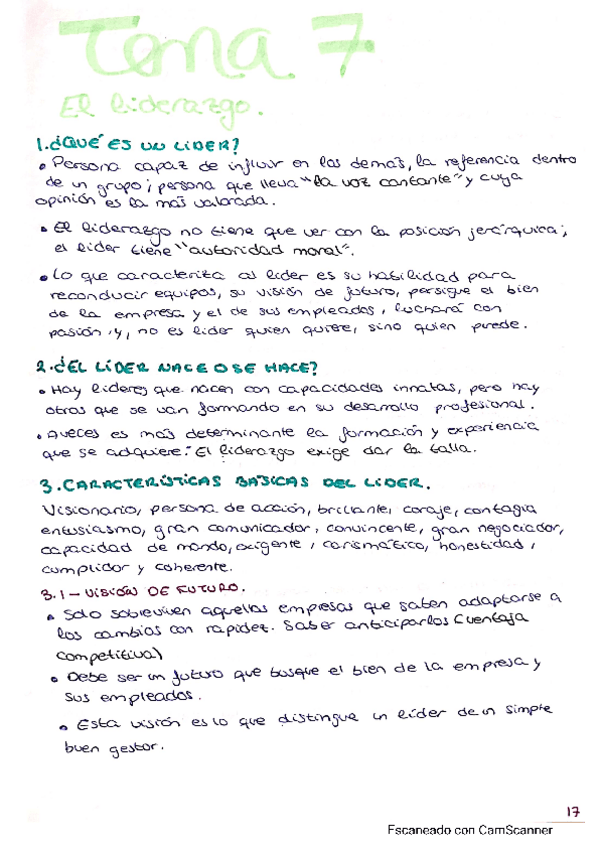 Tema 7
El liderazgo.
1.¿QUÉ ES UN LIDER?
• Persona capaz de influir en los demás, la referencia dentro
de un grupo; persona que lleva "la voz cantante" y cuya
opinión es la más valorada.
• El liderazgo no tiene que ver con la posición jerárquica;
el líder tiene "autoridad moral".
• Lo que caracteriza al líder es su habilidad para
reconducir equipos, su visión de futuro, persigue el bien
de la empresa y el de sus empleados, luchará con
pasión y, no es líder quien quiere, sino quien puede.
2.¿EL LÍDER NACE O SE HACE?
• Hay líderes que nacen con capacidades innatas, pero hay
otros que se van formando en su desarrollo profesional.
• Aveces es más determinante la formación y experiencia
que se adquiere: El liderazgo exige dar la talla.
3.CARACTERÍSTICAS BÁSICAS DEL LIDER.
Visionario, persona de acción, brillante, coraje, contagia
entusiasmo, gran comunicador, convincente, gran negociador,
capacidad de mando, exigente, carismático, honestidad,
cumplidor y coherente.
3.1-VISIÓN DE FUTURO.
• Solo sobreviven aquellas empresas que saben adaptarse a
los cambios con rapidez. Saber anticiparlos (ventaja
competitiva)
• Debe ser un futuro que busque el bien de la empresa y
sus empleados.
• Esta visión es lo que distingue un líder de un simple
buen gestor.
17
Escaneado con CamScanner